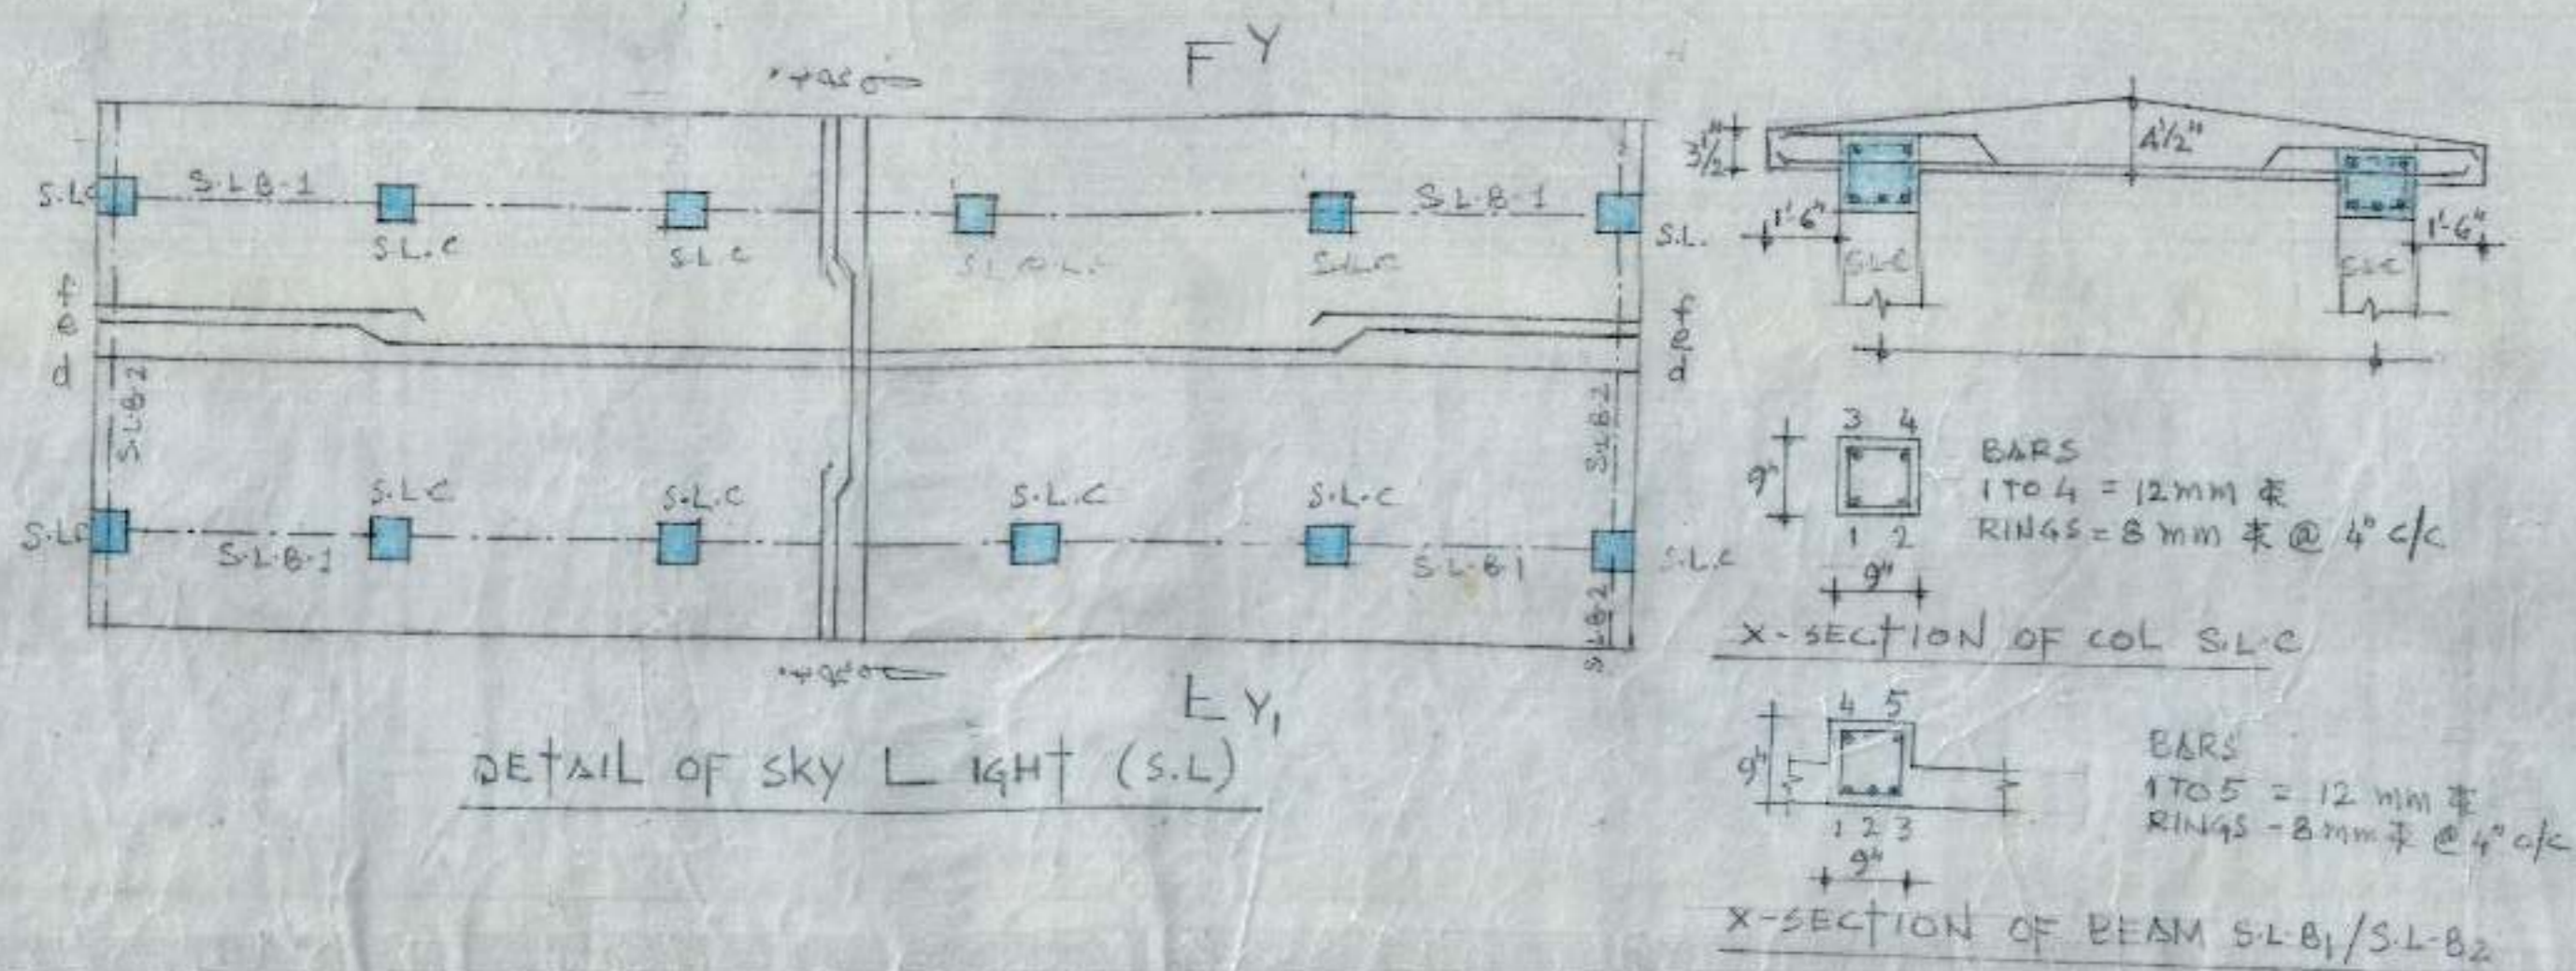 F Y
S.LC
S.L.B-1
S.L.C
S.L.C
S.L.C
S.L.B-1
S.L.
f
e
d
f
e
d
S.L.B-2
S.L.B-2
S.L.C
S.L.C
S.L.C
S.L.C
S.L.B-1
S.L.B-1
S.L.C
S.L.B-2
E Y1
DETAIL OF SKY LIGHT (S.L)
3 1/2"
4 1/2"
1'-6"
1'-6"
S.L.C
S.L.C
3 4
9"
1 2
9"
BARS
1 TO 4 = 12mm
RINGS = 8 mm @ 4" c/c
X-SECTION OF COL S.L.C
4 5
9"
1 2 3
9"
BARS
1 TO 5 = 12 mm
RINGS - 8 mm @ 4" c/c
X-SECTION OF BEAM S.L.B1/S.L-B2